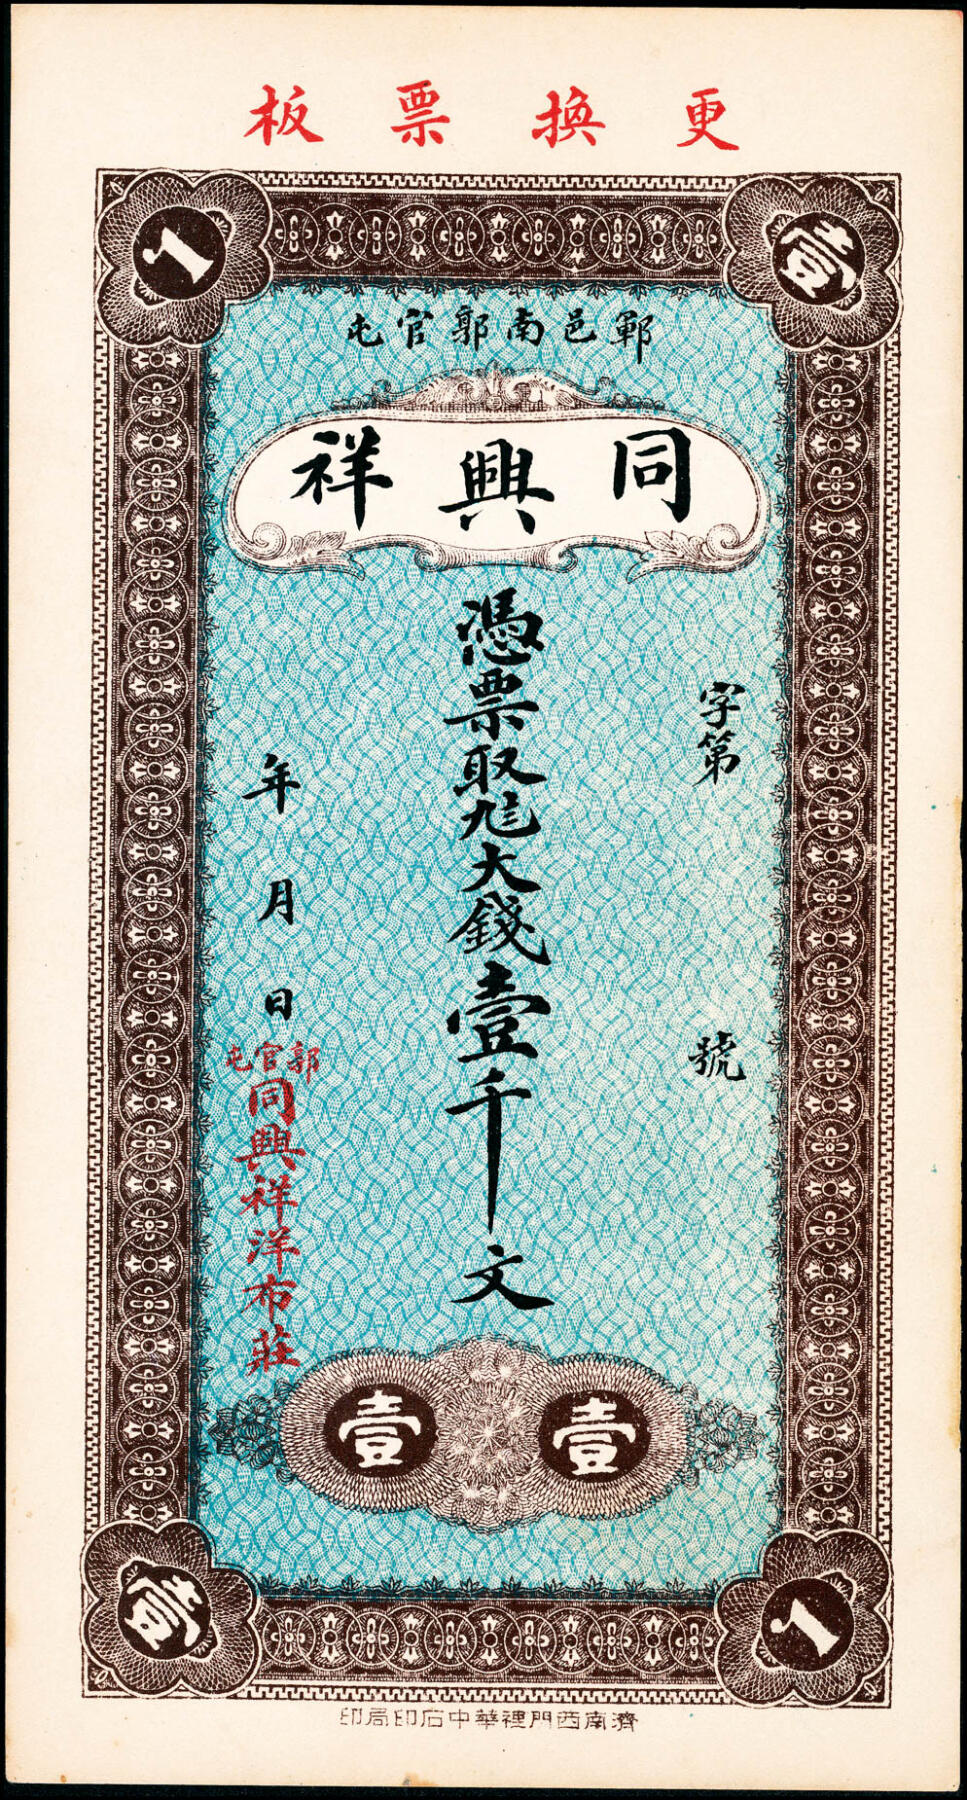 更換票板
壹
1
鄆邑南郭官屯
同興祥
字第 號
憑票取大錢壹千文
年 月 日
郭官屯
同興祥洋布莊
壹 壹
1
壹
濟南西門裡華中石印局印